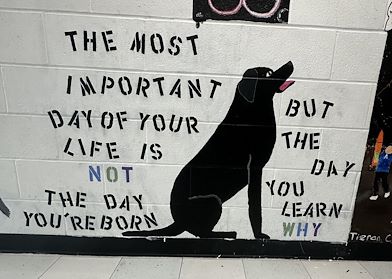 THE MOST
IMPORTANT
DAY OF YOUR
LIFE IS
NOT
THE DAY
YOU'RE BORN
BUT
THE
DAY
YOU
LEARN
WHY